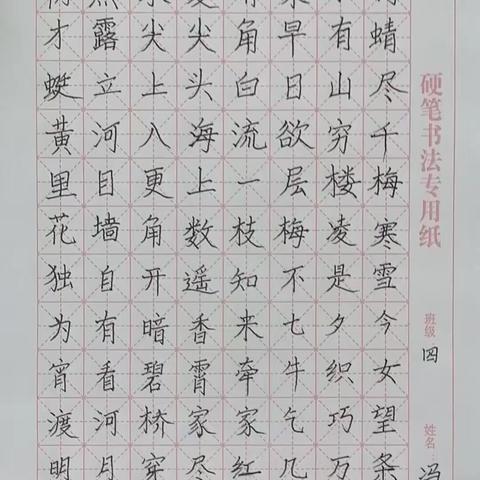 才露尖尖角早有蜻
蜓立上头白日山尽
黄河入海流欲穷千
里目更上一层楼梅
花墙角数枝梅凌寒
独自开遥知不是雪
为有暗香来七夕今
宵看碧霄牵牛织女
渡河桥家家乞巧望
明月穿尽红几万条
硬笔书法专用纸
班级 四
姓名 冯